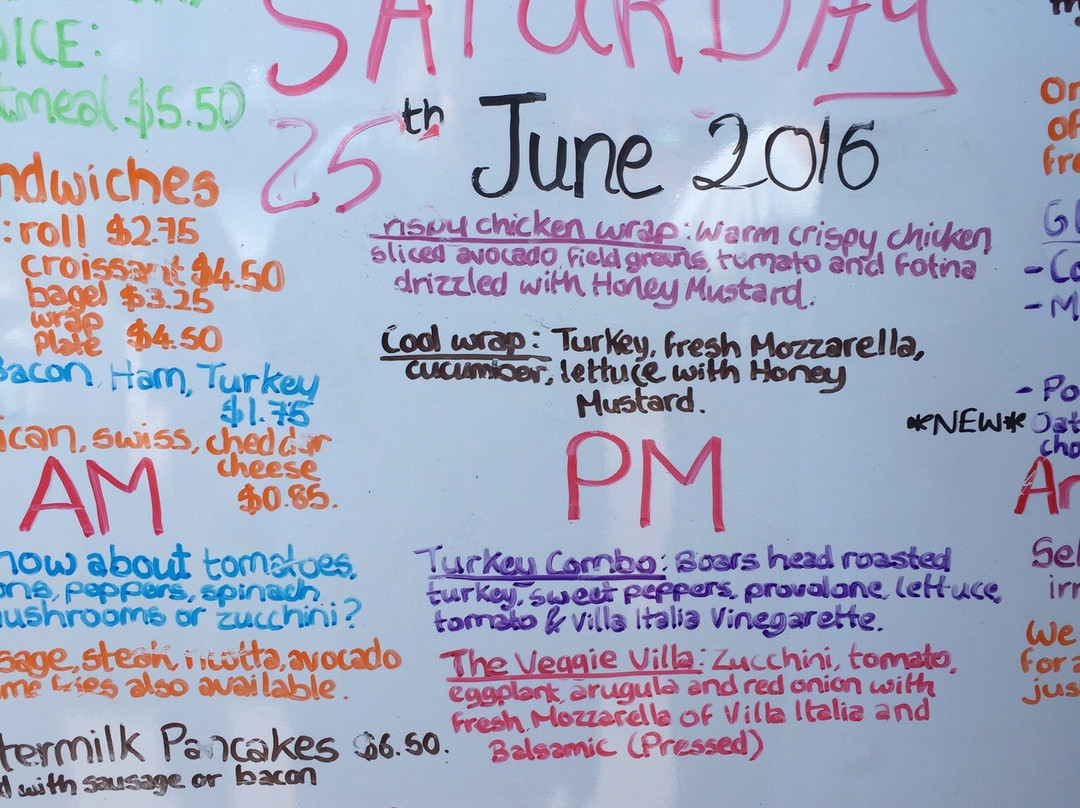 SATURDAY
25th June 2016
OICE:
tmeal $5.50
ndwiches
: roll $2.75
croissant $4.50
bagel $3.25
wrap
Plate $4.50
Bacon, Ham, Turkey
$1.75
ican, swiss, cheddar
cheese
$0.85.
AM
how about tomatoes,
ons, peppers, spinach
mushrooms or zucchini?
sage, steak, ricotta, avocado
me fries also available.
termilk Pancakes $6.50.
d with sausage or bacon
rispy chicken wrap: Warm crispy chicken
sliced avocado, field greens, tomato and Fotina
drizzled with Honey Mustard.
Cool wrap: Turkey, fresh Mozzarella,
cucumber, lettuce with Honey
Mustard.
PM
Turkey Combo: Boars head roasted
turkey, sweet peppers, provolone, lettuce,
tomato & Villa Italia Vinegarette.
The Veggie Villa: Zucchini, tomato,
eggplant, arugula and red onion with
fresh Mozzarella of Villa Italia and
Balsamic (Pressed)
Or
of
fre
GL
- Co
- M
- Po
*NEW* Oat
cho
Ar
Sel
irr
We
for a
jus